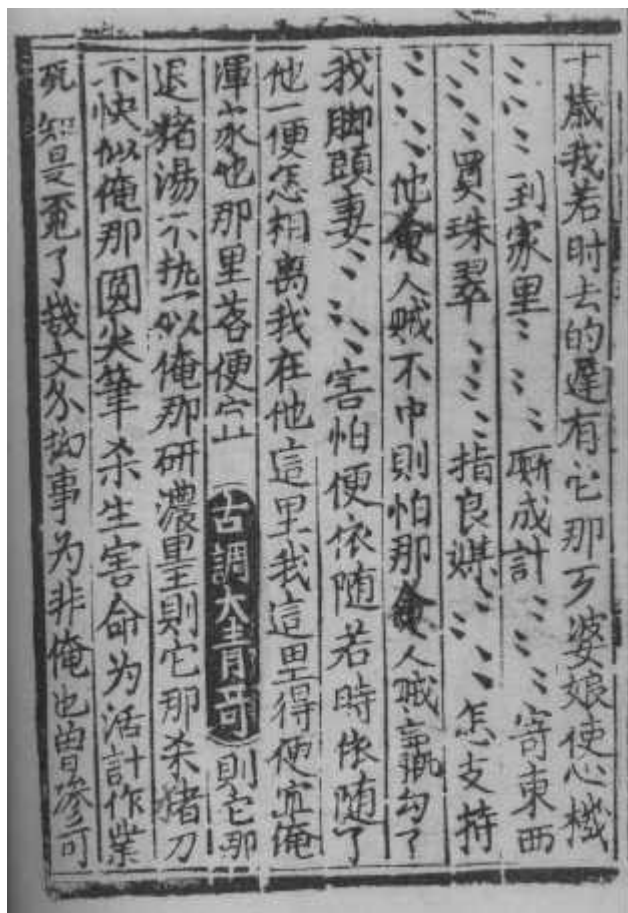 十歳我若时去的遲有它那歹婆娘使心機
〻〻〻到家里〻〻〻厮成計〻〻〻寄東西
〻〻〻買珠翠〻〻〻指良媒〻〻〻怎支持
〻〻〻他人贼不中則怕那人贼勾了
我脚頭妻〻〻〻害怕便依随若時依随了
他一便怎相离我在他這里我這里得便宜俺
渾家他那里落便宜 古調大青哥 則它那
退猪湯不热似俺那研濃墨則它那杀猪刀
不快似俺那圓尖筆杀生害命为活計作業
知是了文事为非俺也曾可